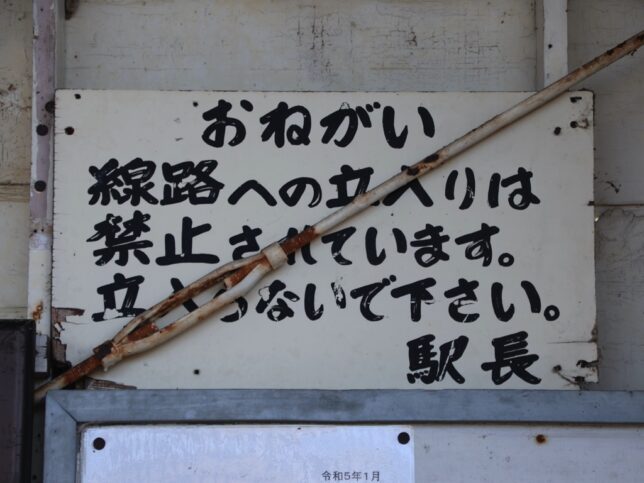 おねがい
線路への立入りは
禁止されています。
立入らないで下さい。
駅長
令和5年1月